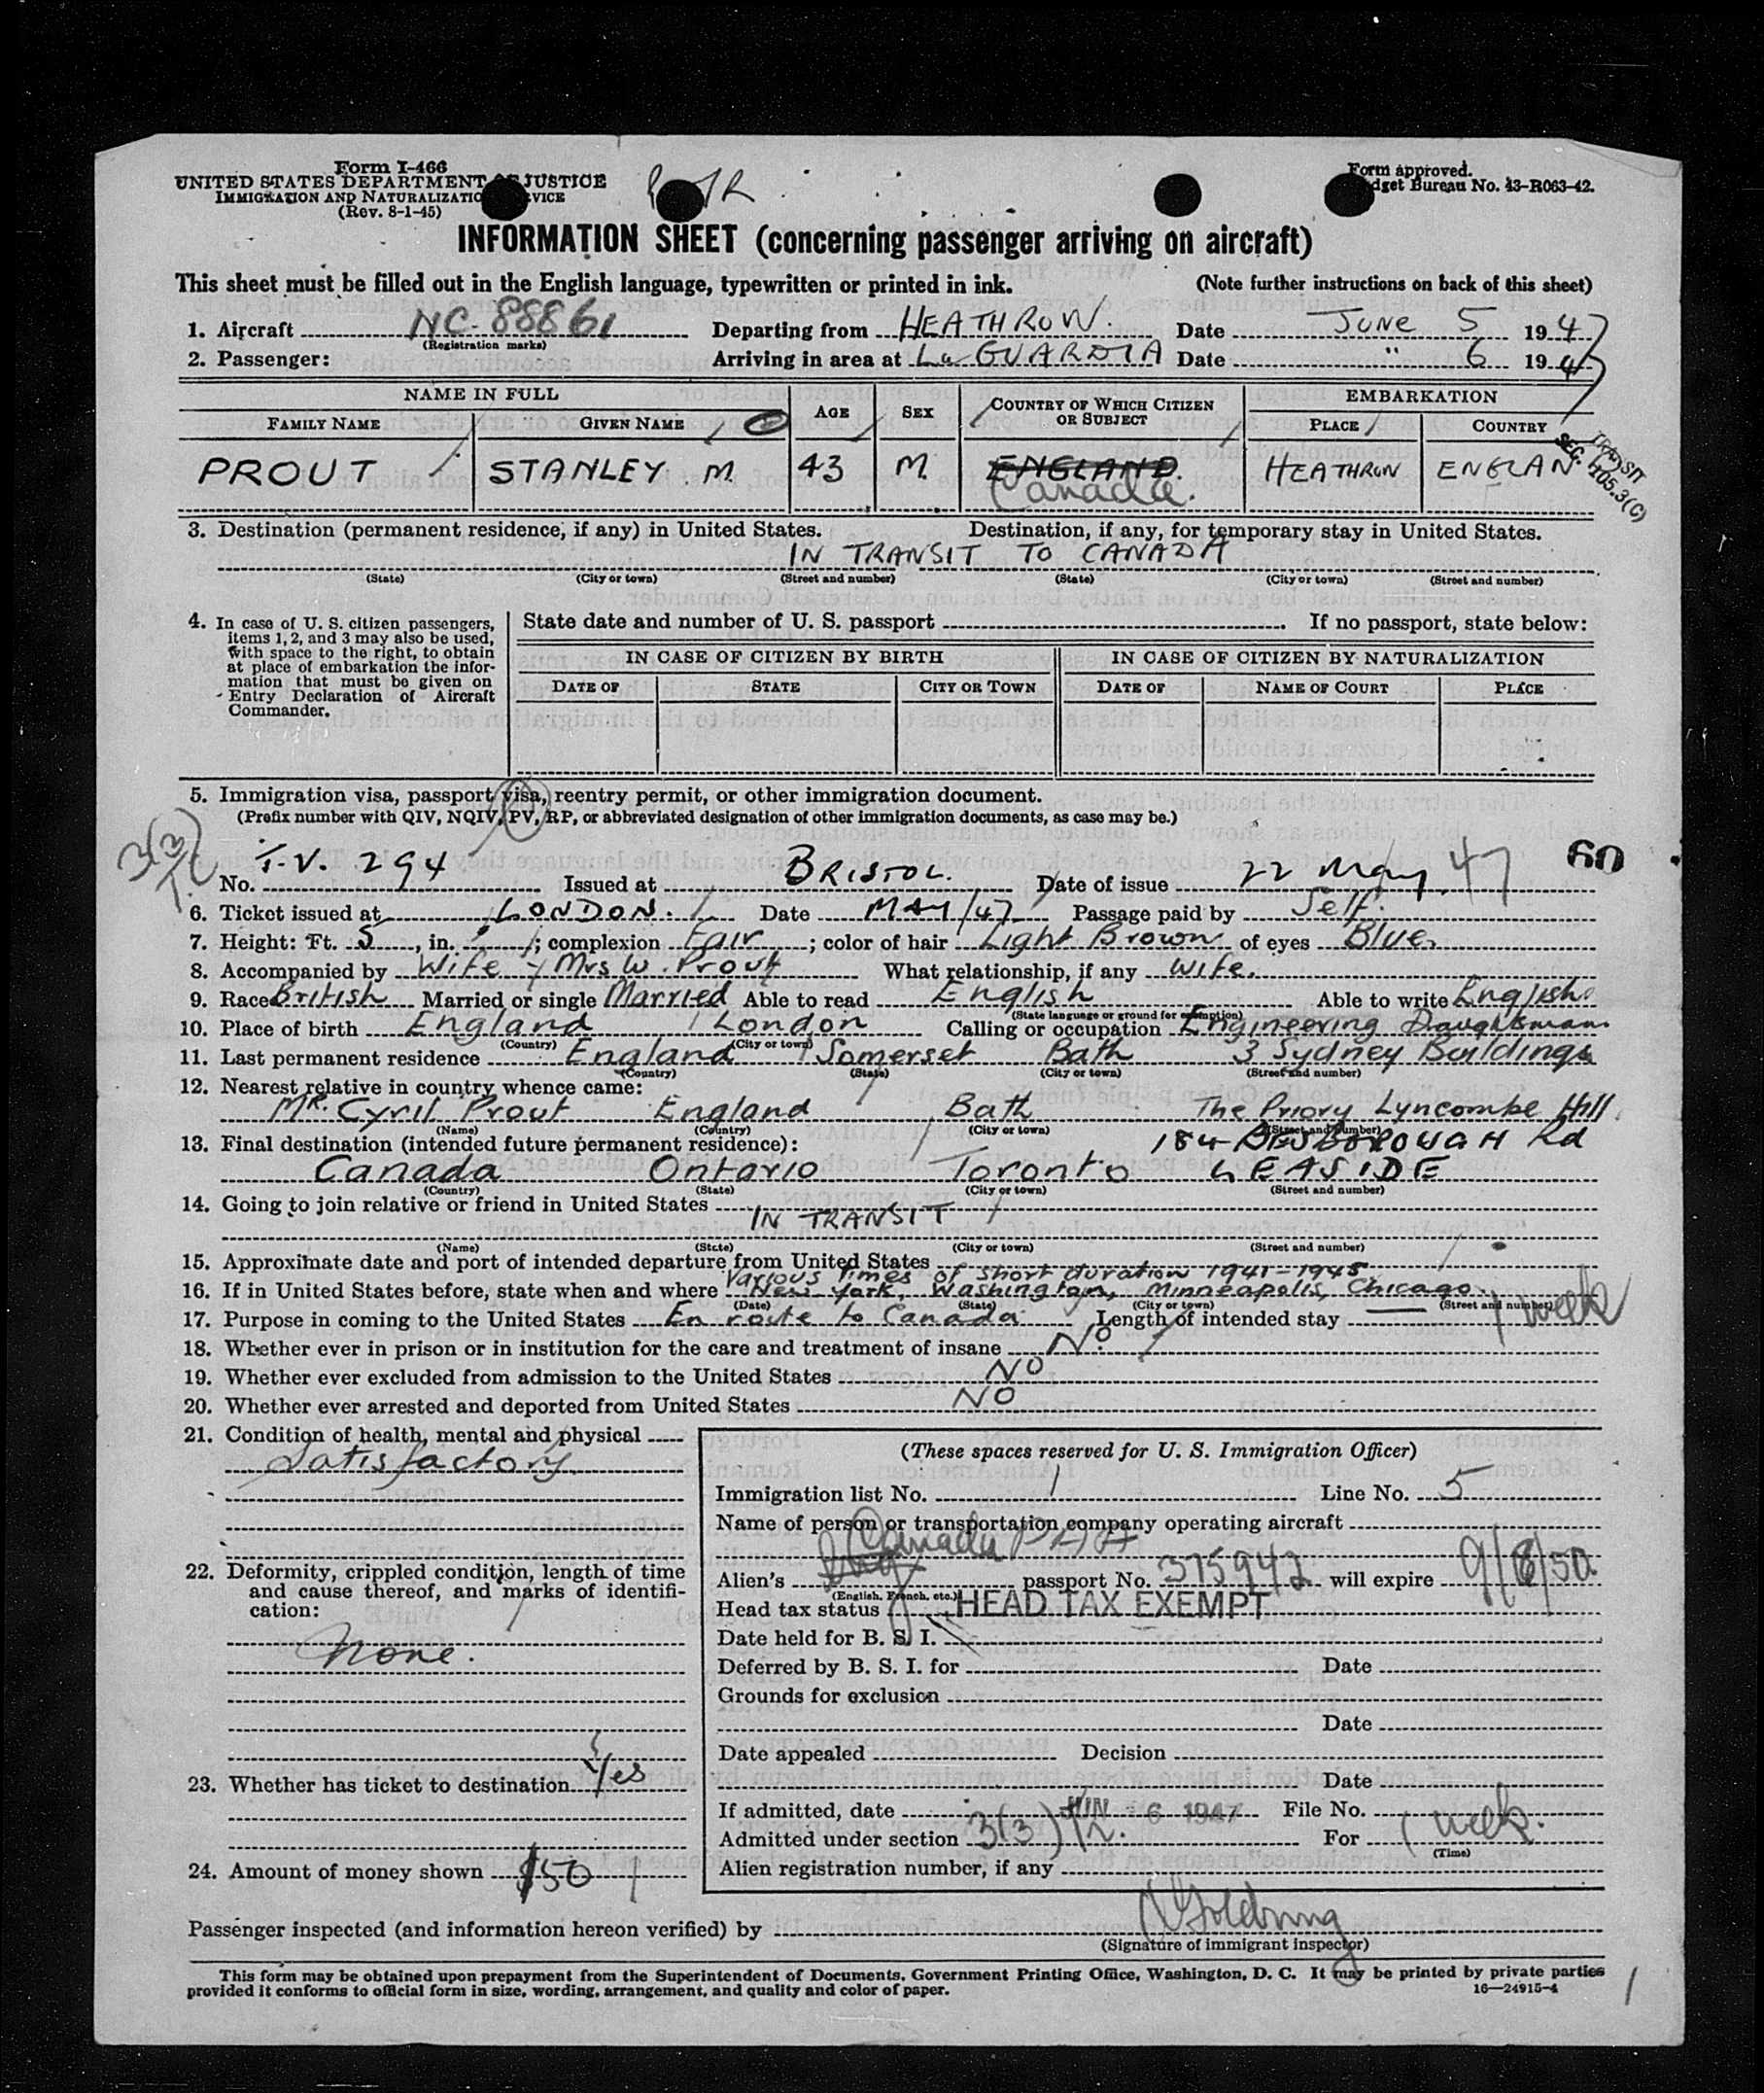 Form I-466
UNITED STATES DEPARTMENT JUSTICE
IMMIGRATION AND NATURALIZATIO VICE
(Rev. 8-1-45)
Form approved.
dget Bureau No. 43-R063-42.
INFORMATION SHEET (concerning passenger arriving on aircraft)
This sheet must be filled out in the English language, typewritten or printed in ink. (Note further instructions on back of this sheet)
1. Aircraft NC-88861 Departing from HEATHROW. Date JUNE 5 1947
(Registration marks)
2. Passenger: Arriving in area at La GUARDIA Date " 6 1947
NAME IN FULL AGE SEX COUNTRY OF WHICH CITIZEN OR SUBJECT EMBARKATION
FAMILY NAME GIVEN NAME PLACE COUNTRY
PROUT STANLEY M. 43 M. ENGLAND. HEATHROW ENGLAN
Canada.
TRANSIT
SEC. 105.3(C)
3. Destination (permanent residence, if any) in United States. Destination, if any, for temporary stay in United States.
IN TRANSIT TO CANADA
(State) (City or town) (Street and number) (State) (City or town) (Street and number)
4. In case of U. S. citizen passengers, items 1, 2, and 3 may also be used, with space to the right, to obtain at place of embarkation the information that must be given on Entry Declaration of Aircraft Commander.
State date and number of U. S. passport If no passport, state below:
IN CASE OF CITIZEN BY BIRTH IN CASE OF CITIZEN BY NATURALIZATION
DATE OF STATE CITY OR TOWN DATE OF NAME OF COURT PLACE
5. Immigration visa, passport visa, reentry permit, or other immigration document.
(Prefix number with QIV, NQIV, PV, RP, or abbreviated designation of other immigration documents, as case may be.)
60
No. T.V. 294 Issued at BRISTOL. Date of issue 22 May. 47
6. Ticket issued at LONDON. Date MAY/47 Passage paid by Self.
7. Height: Ft. 5, in. ; complexion Fair; color of hair Light Brown of eyes Blue.
8. Accompanied by Wife Mrs W. Prout What relationship, if any Wife.
9. Race British Married or single Married Able to read English Able to write English
(State language or ground for exemption)
10. Place of birth England London Calling or occupation Engineering Daughtsman
(Country) (City or town)
11. Last permanent residence England Somerset Bath 3 Sydney Buildings
(Country) (State) (City or town) (Street and number)
12. Nearest relative in country whence came:
MR. Cyril Prout England Bath The Priory Lyncombe Hill
(Name) (Country) (City or town) (Street and number)
13. Final destination (intended future permanent residence): 184 Rd
Canada Ontario Toronto LEASIDE
(Country) (State) (City or town) (Street and number)
14. Going to join relative or friend in United States IN TRANSIT
(Name) (State) (City or town) (Street and number)
15. Approximate date and port of intended departure from United States
Various Times of short duration 1941-1945
16. If in United States before, state when and where New York, Washington, Minneapolis, Chicago.
(Date) (State) (City or town) (Street and number)
17. Purpose in coming to the United States En route to Canada Length of intended stay 1 week
18. Whether ever in prison or in institution for the care and treatment of insane No.
19. Whether ever excluded from admission to the United States NO
20. Whether ever arrested and deported from United States NO
21. Condition of health, mental and physical
Satisfactory
22. Deformity, crippled condition, length of time and cause thereof, and marks of identification:
None.
23. Whether has ticket to destination Yes
24. Amount of money shown $50
(These spaces reserved for U. S. Immigration Officer)
Immigration list No. 1 Line No. 5
Name of person or transportation company operating aircraft
Canada PAA
Alien's passport No. 375942 will expire 9/8/50.
(English, French, etc.)
Head tax status HEAD TAX EXEMPT
Date held for B. S. I.
Deferred by B. S. I. for Date
Grounds for exclusion
Date
Date appealed Decision
Date
If admitted, date JUN 6 1947 File No.
Admitted under section 3(3) For 1 week.
(Time)
Alien registration number, if any
Passenger inspected (and information hereon verified) by
(Signature of immigrant inspector)
This form may be obtained upon prepayment from the Superintendent of Documents, Government Printing Office, Washington, D. C. It may be printed by private parties
provided it conforms to official form in size, wording, arrangement, and quality and color of paper. 16—24915-4